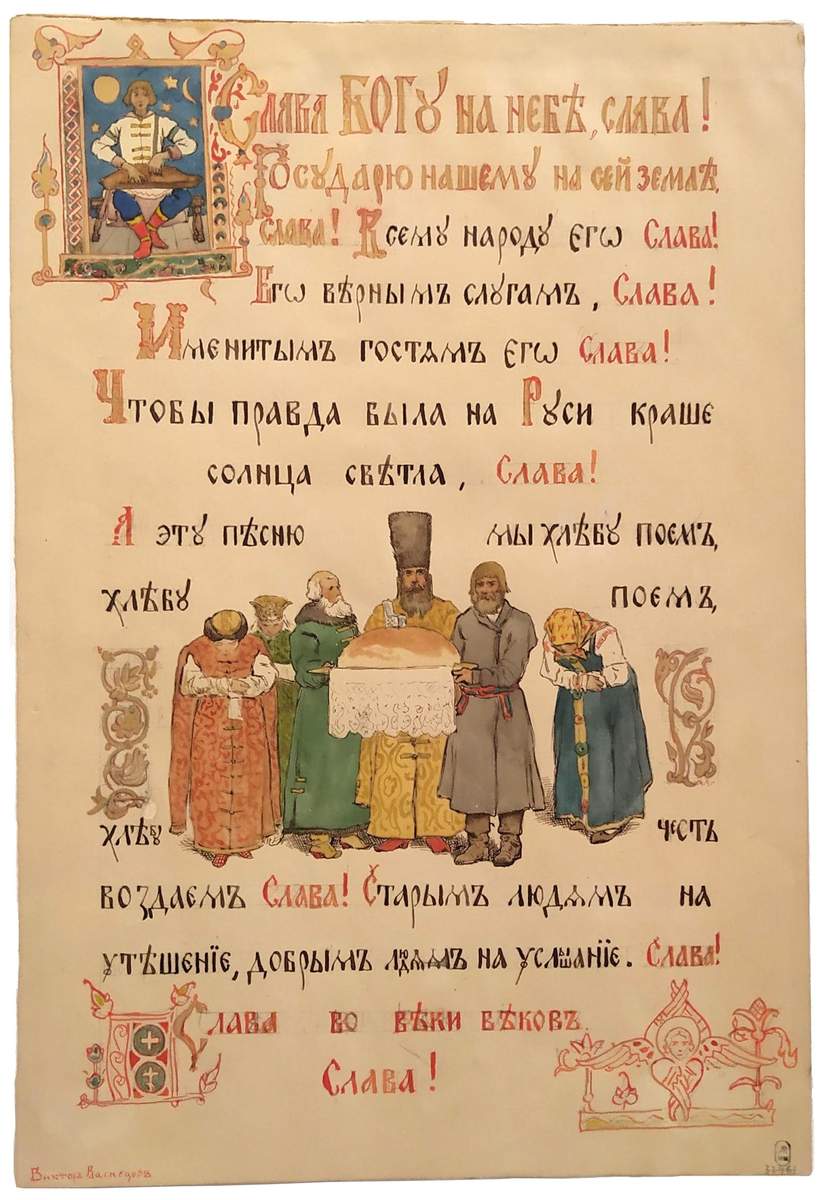 Слава Богу на небѣ, слава!
Государю нашему на сей землѣ,
слава! Всему народу его Слава!
Его вѣрнымъ слугамъ, Слава!
Именитымъ гостямъ его Слава!
Чтобы правда была на Руси краше
солнца свѣтла, Слава!
А эту пѣсню мы хлѣбу поемъ,
хлѣбу поемъ,
хлѣбу честь
воздаемъ Слава! Старымъ людямъ на
утѣшенїе, добрымъ людямъ на услышанїе. Слава!
Слава во вѣки вѣковъ
Слава!
Викторъ Васнецовъ